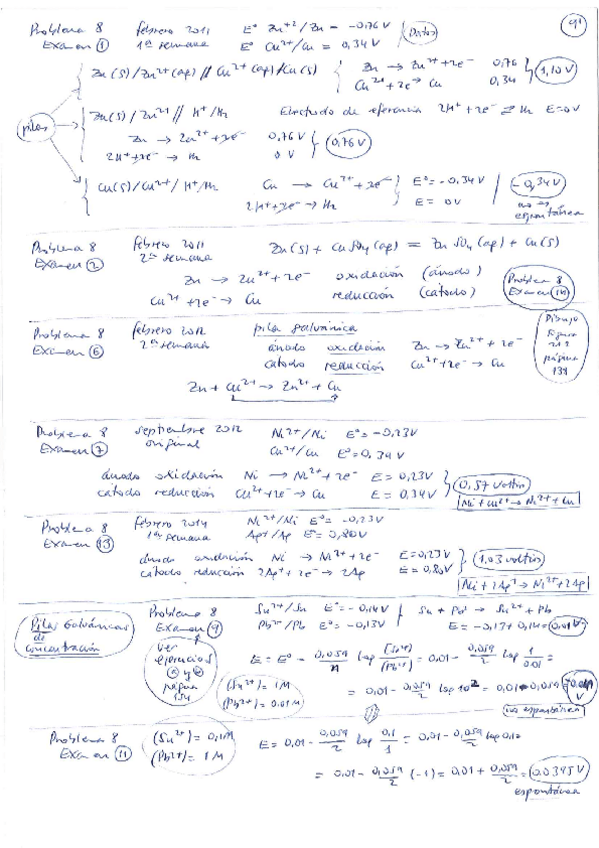 Problema 8 febrero 2011 E° Zn+2/Zn = -0,76V (Datos) 91
Examen 1 1ª semana E° Cu2+/Cu = 0,34V
Zn(s)/Zn2+(aq)//Cu2+(aq)/Cu(s) Zn → Zn2+ + 2e- 0,76 1,10V
Cu2+ + 2e- → Cu 0,34
pilas
Zn(s)/Zn2+//H+/H2 Electrodo de referencia 2H+ + 2e- ⇄ H2 E=0V
Zn → Zn2+ + 2e- 0,76V 0,76V
2H+ + 2e- → H2 0V
Cu(s)/Cu2+/H+/H2 Cu → Cu2+ + 2e- E° = -0,34V -0,34V
2H+ + 2e- → H2 E = 0V no espontánea
Problema 8 febrero 2011 Zn(s) + CuSO4(aq) = ZnSO4(aq) + Cu(s)
Examen 2 2ª semana
Zn → Zn2+ + 2e- oxidación (ánodo) Problema 8
Cu2+ + 2e- → Cu reducción (cátodo) Examen 14
Problema 8 febrero 2012 pila galvánica Dibujo
Examen 6 2ª semana ánodo oxidación Zn → Zn2+ + 2e- Figura
cátodo reducción Cu2+ + 2e- → Cu página
Zn + Cu2+ → Zn2+ + Cu
Problema 8 septiembre 2012 Ni2+/Ni E° = -0,23V
Examen 7 original Cu2+/Cu E° = 0,34V
ánodo oxidación Ni → Ni2+ + 2e- E = 0,23V 0,57 voltios
cátodo reducción Cu2+ + 2e- → Cu E = 0,34V Ni + Cu2+ → Ni2+ + Cu
Problema 8 febrero 2014 Ni2+/Ni E° = -0,23V
Examen 13 1ª semana Ag+/Ag E° = 0,80V
ánodo oxidación Ni → Ni2+ + 2e- E = 0,23V 1,03 voltios
cátodo reducción 2Ag+ + 2e- → 2Ag E = 0,80V Ni + 2Ag+ → Ni2+ + 2Ag
Pilas Galvánicas de concentración
Problema 8 Sn2+/Sn E° = -0,14V Sn + Pb2+ → Sn2+ + Pb
Examen 9 Pb2+/Pb E° = -0,13V E = -0,13 + 0,14 = 0,01V
ver ejercicios y página 154
E = E° - 0,059/n log [Sn2+]/[Pb2+] = 0,01 - 0,059/2 log 1/0.01 =
(Sn2+) = 1M
(Pb2+) = 0.01M
= 0,01 - 0,059/2 log 10² = 0,01 - 0,059 = -0,049 V
no espontánea
Problema 8 (Sn2+) = 0,1M E = 0,01 - 0,059/2 log 0,1/1 = 0,01 - 0,059/2 log 0,1 =
Examen 11 (Pb2+) = 1M
= 0,01 - 0,059/2 (-1) = 0,01 + 0,059/2 = 0.0395V
espontánea